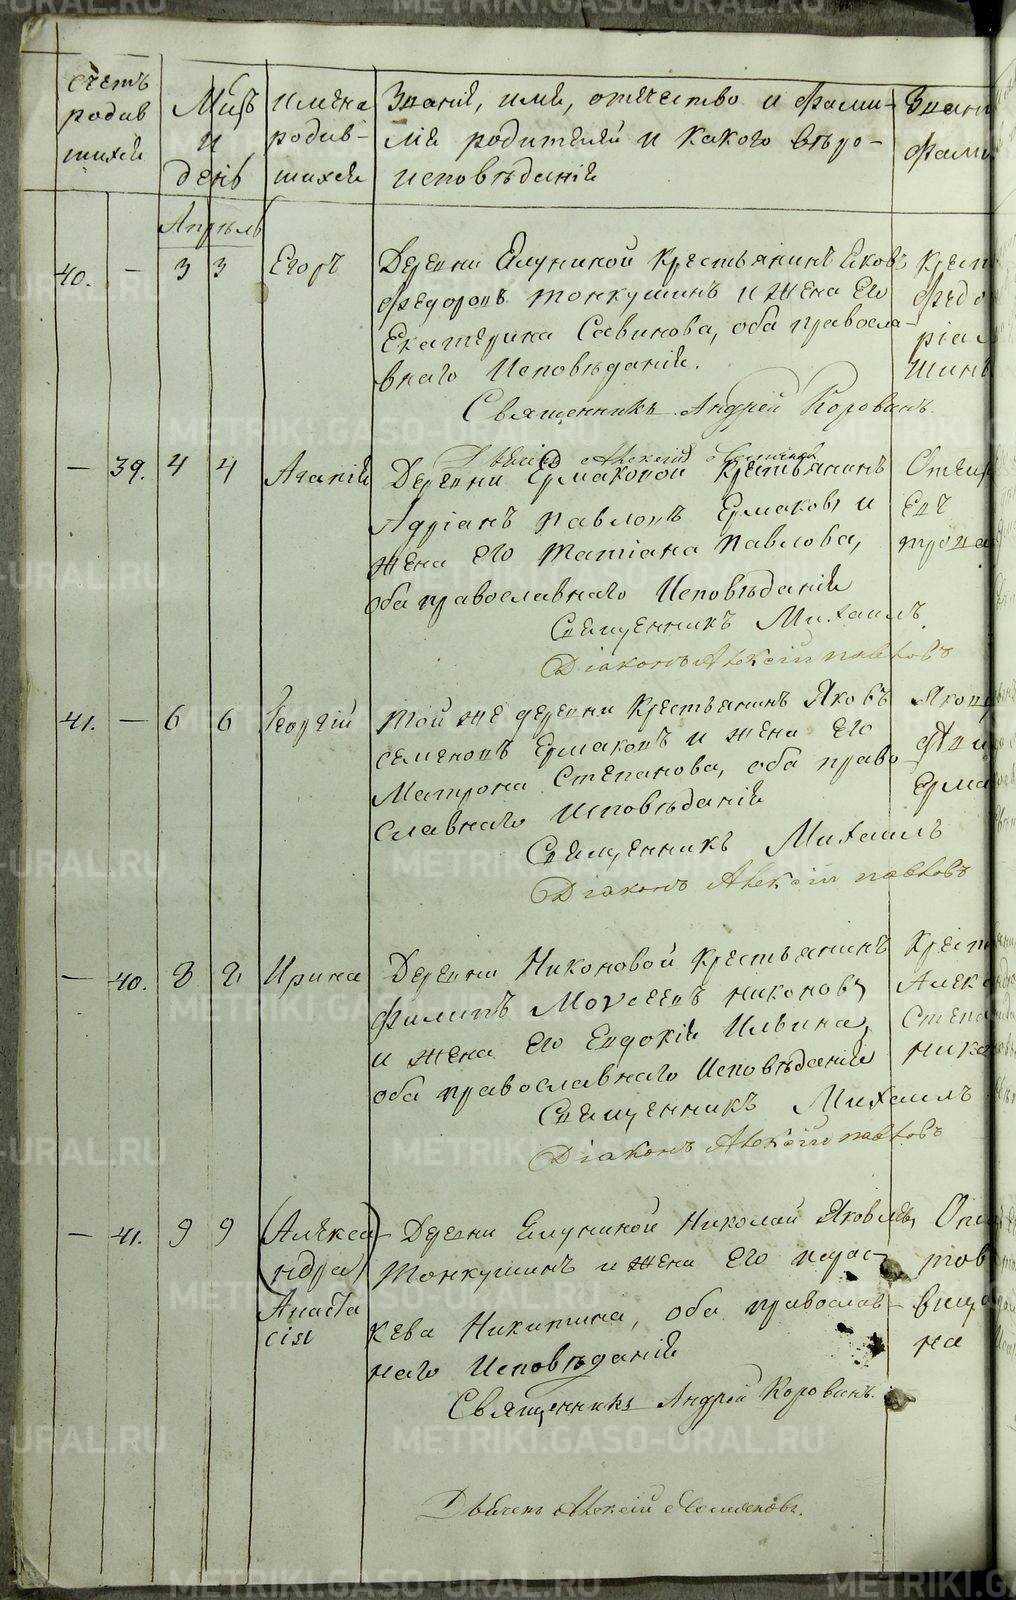 счетъ
родив
шихся
Мцъ
и
день
имена
родив-
шихся
Званiй, имя, отечество и фами-
лiя родителей и какого вѣро-
исповѣданiй
Звани
фами
Апрѣль
40. — 3 3 Егоръ
Деревни Елуниной Крестьянинъ Яковъ
Федоровъ Тонкушинъ и жена Его
Екатерина Савинова, оба правосла-
внаго Исповѣданiй.
Священникъ Андрей Коровинъ.
Крест
Федо
рiа
шинъ
— 39. 4 4 Агапiй
Деревни Ермаковой Крестьянинъ
Адрiанъ Павловъ Ермаковъ и
жена его Татiана Павлова,
оба православнаго Исповѣданiй
Священникъ Михаилъ
Дiаконъ Алексiй Павловъ
Отстав
Евг
трова
41. — 6 6 Георгiй
той же деревни Крестьянинъ Яковъ
Семеновъ Ермаковъ и жена Его
Матрона Степанова, оба право
славнаго Исповѣданiй
Священникъ Михаилъ
Дiаконъ Алексiй Павловъ
Ерма
— 40. 8 8 Ирина
Деревни Никоновой Крестьянинъ
Филипъ Моѵсеевъ Никоновъ
и жена Его Евдокiй Ильина,
оба православнаго Исповѣданiй
Священникъ Михаилъ
Дiаконъ Алексiй Павловъ
Крест
Алекса
Степа
Нико
— 41. 9 9 (Алекса
ндра)
Анаста
сiя
Деревни Елуниной Николай Яковлевъ
Тонкушинъ и жена Его Парас-
кева Никитина, оба православ-
наго Исповѣданiй
Священникъ Андрей Коровинъ.
тов
на
METRIKI.GASO-URAL.RU